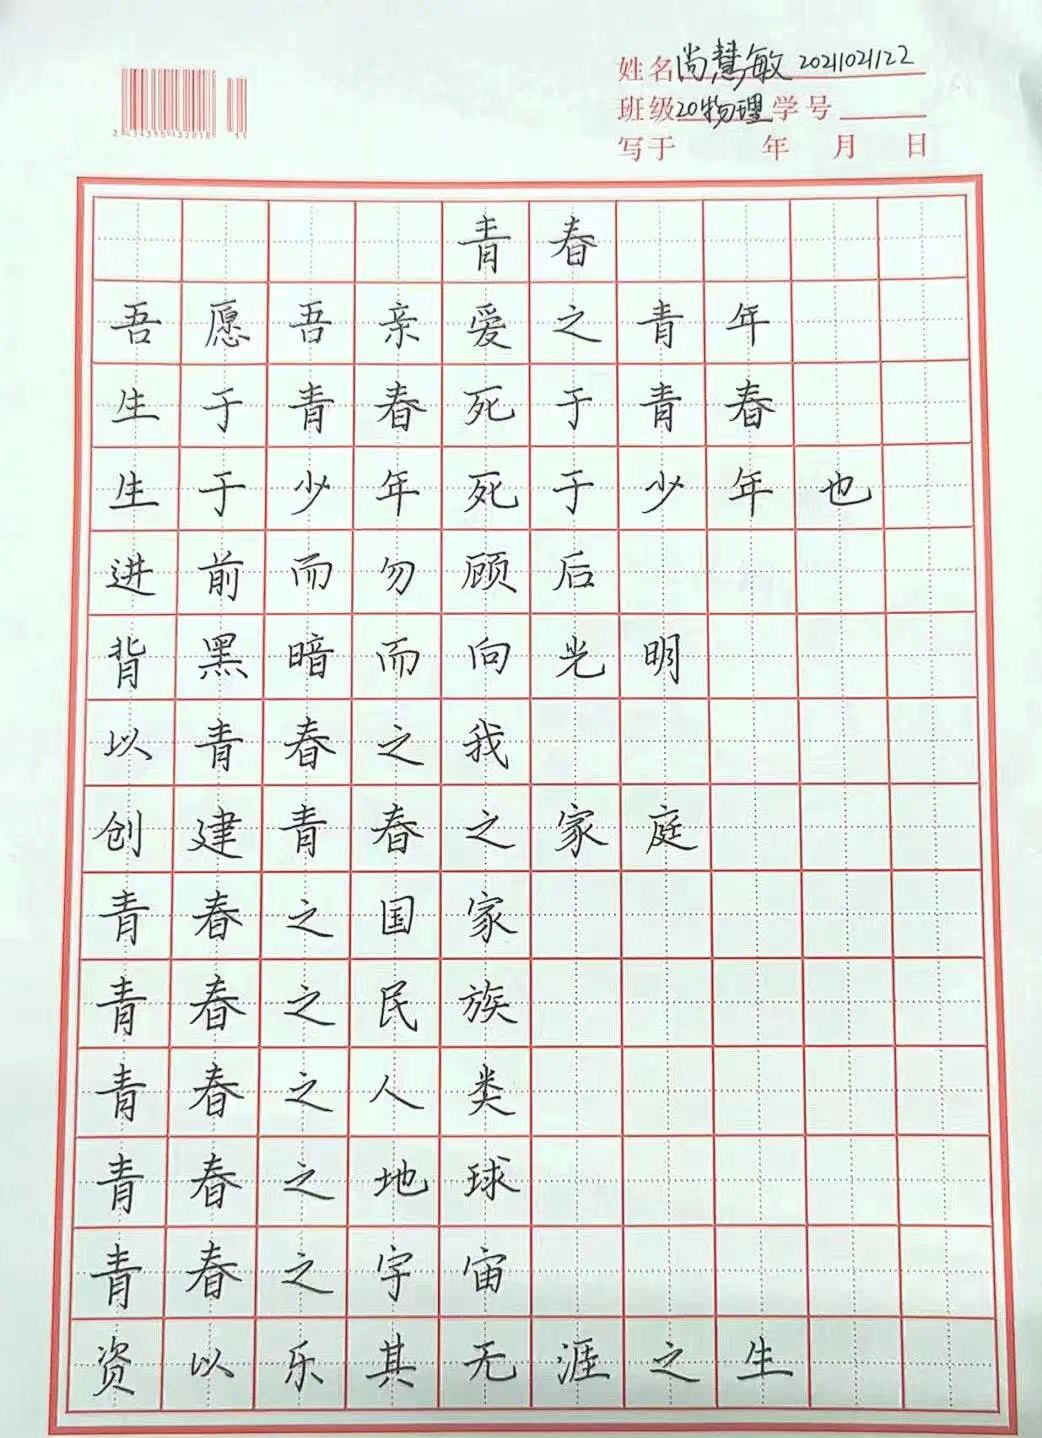 姓名尚慧敏 2021021122
班级20物理学号
写于 年 月 日
青春
吾愿吾亲爱之青年
生于青春死于青春
生于少年死于少年也
进前而勿顾后
背黑暗而向光明
以青春之我
创建青春之家庭
青春之国家
青春之民族
青春之人类
青春之地球
青春之宇宙
资以乐其无涯之生